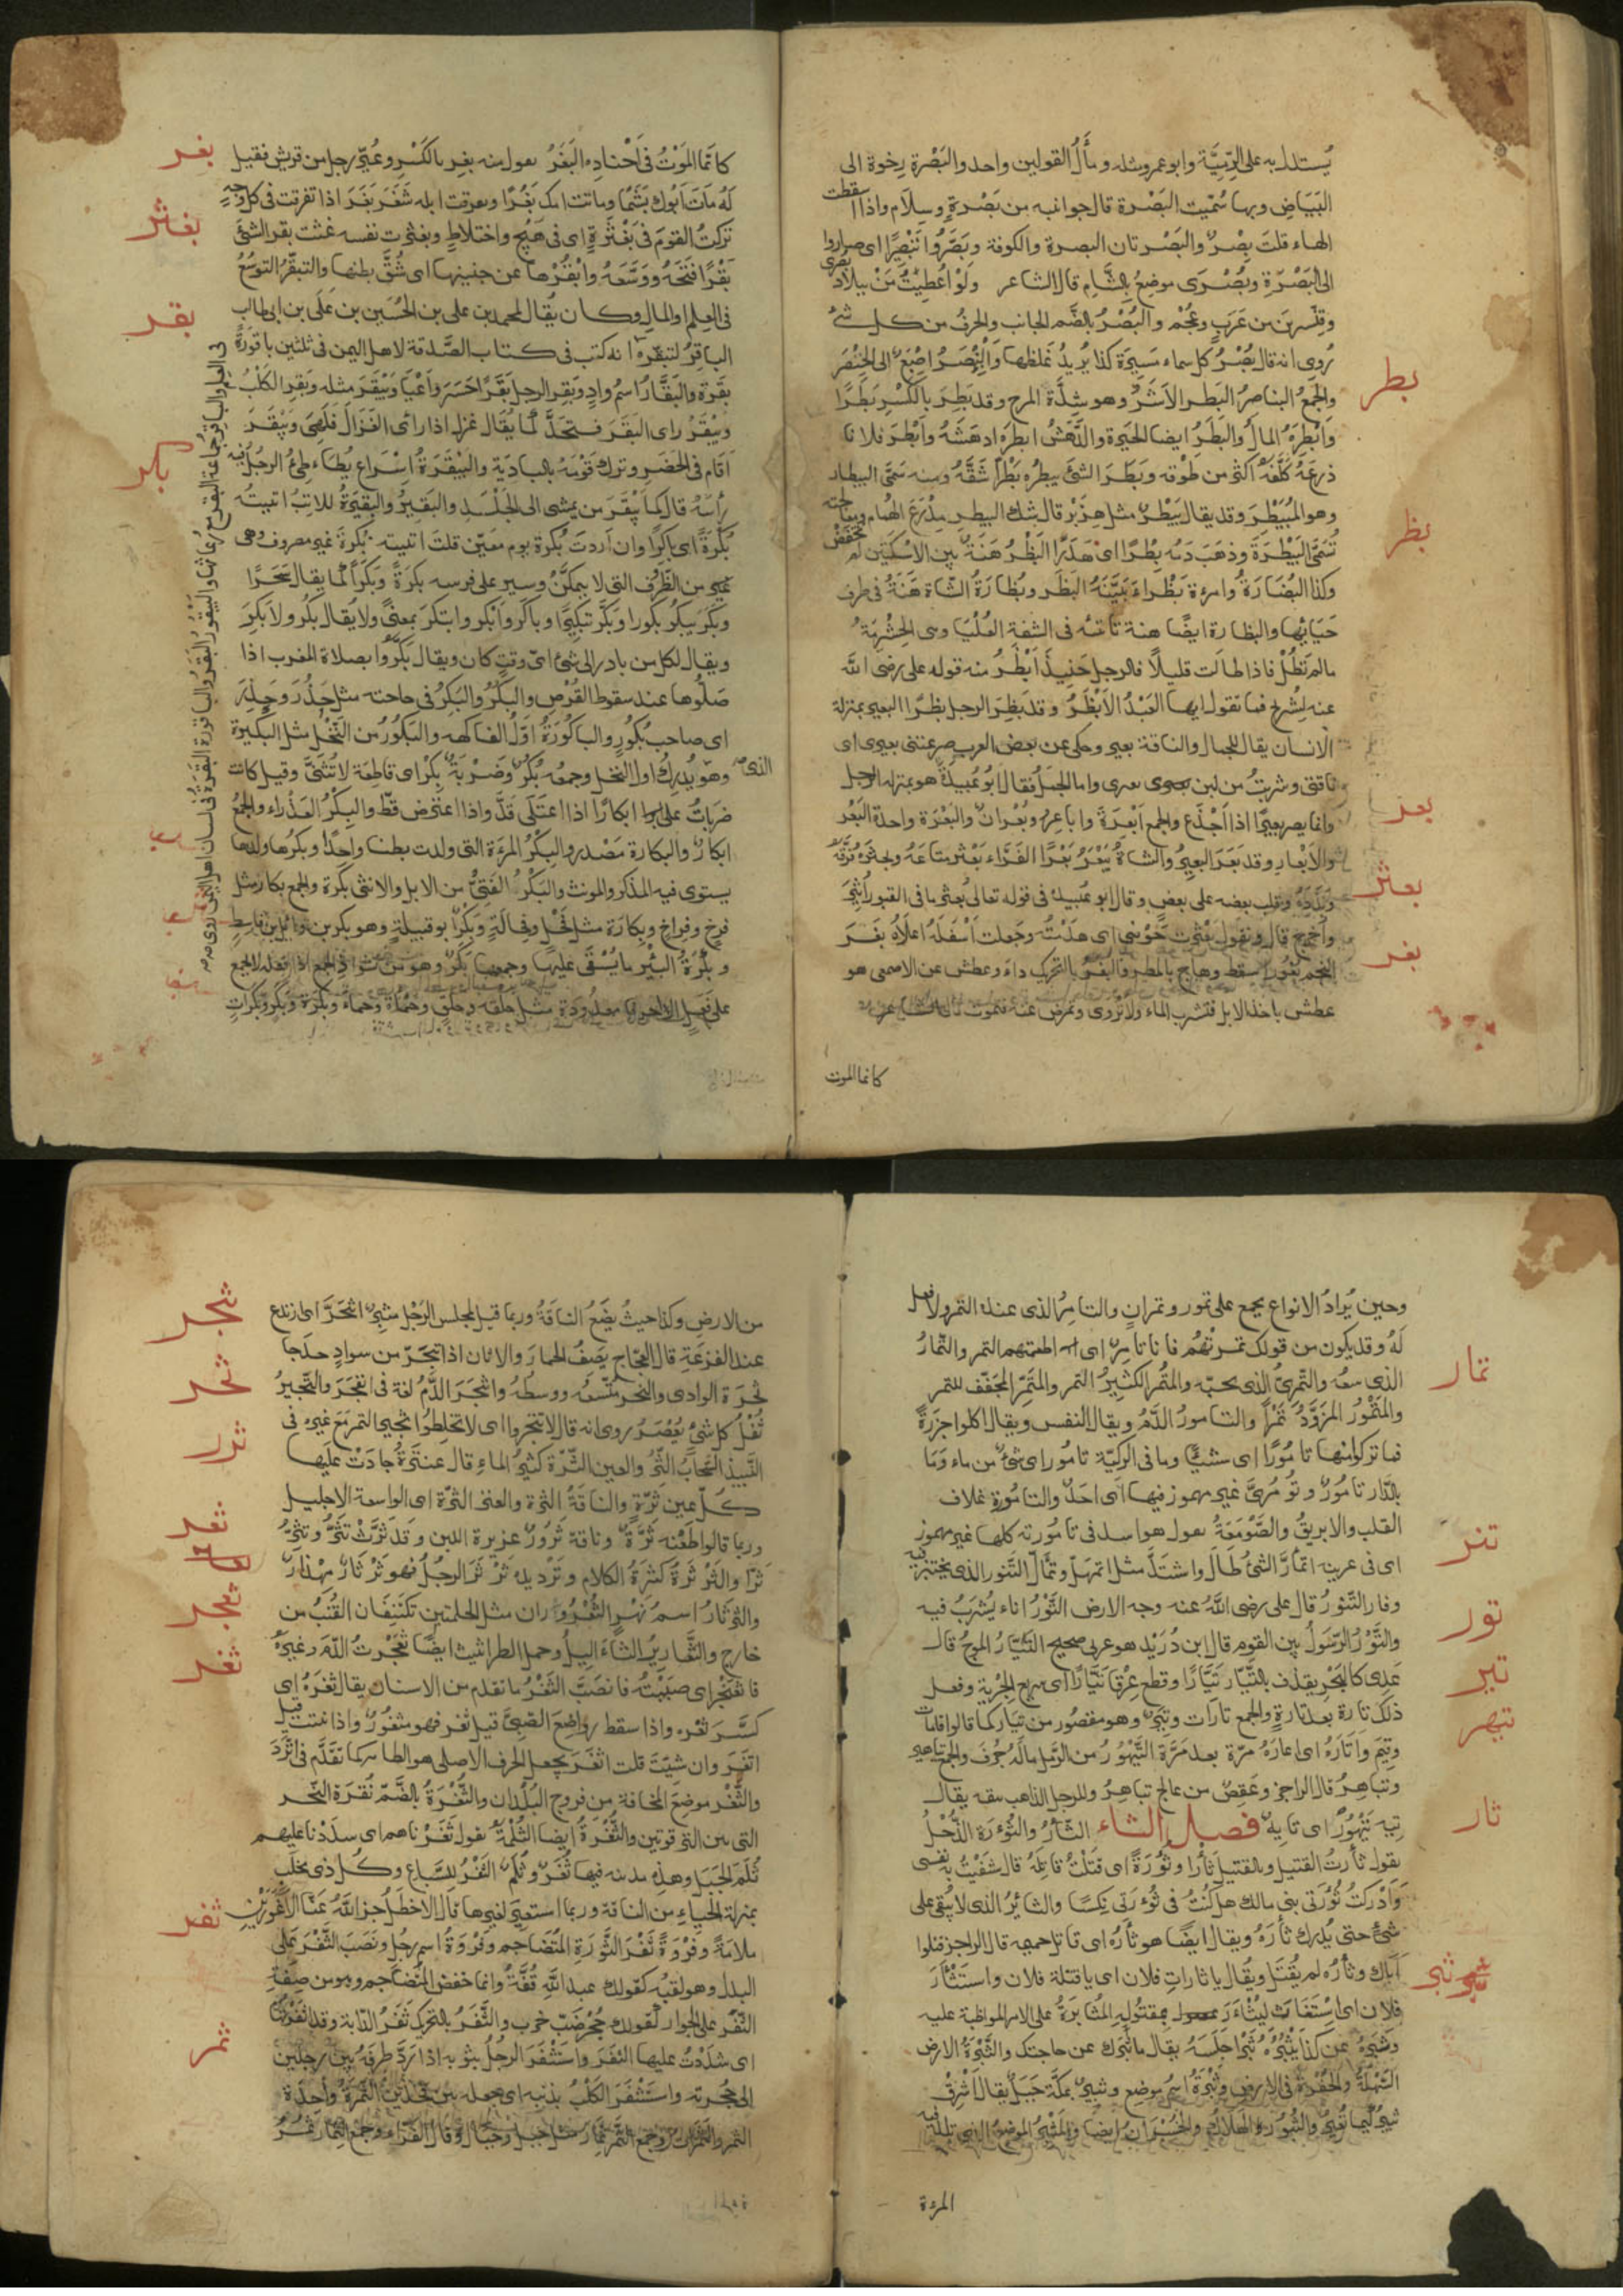 يُستدل به على الرميَّة وابو عمرو مثله ومآل القولين واحد والبَصْرة رخوة الى
البَيَاض وبها سُمّيت البَصْرة قال جوانبه من بَصْرةٍ وسِلام واذا سقطت
الهاء قلتَ بِصْر والبَصْرتان البصرة والكوفة وبَصَّروا تبصيرًا اى صاروا
الى البَصْرَة وبُصْرَى موضع بالشَّام قال الشاعر ولَوْ اُعطِيتُ مَنْ ببلاد بُصْرى
وقنّسرين من عَرَب وعُجْم والبُصْرُ بالضّم الجانب والحرف من كل شئ
رُوى انه قال بُصْرُ كل سماء مسيرة كذا يُريدُ غِلَظها والبِنْصَرُ اِصْبَع الى الخِنْصَر
بطر
والجمعُ البناصر البَطَر الاَشَر وهو شِدَّة المرح وقد بَطِرَ بالكَسْر بَطَرًا
وأبْطره المالُ والبَطَرُ ايضا الحَيْرة والدَّهَشُ ابطره ادهَشَهُ وأبْطَر فلانا
ذرعَهُ كلَّفَهُ اكثر من طَوْقه وبَطَرَ الشئَ يبطره بَطْرًا شَقَّهُ ومنه سُمّى البيطار
وهو المُبَيْطِر وقد يقال بِيَطْر مثل هِزَبْر قال شك البيطر مِدْرَعَ الهُمام ومعالجته
بظر
تُسَمّى البَيْطَرَة وذهَبَ دَمُه بِطْرًا اى هَدَرًا البَظْرُ هَنَة بين الاَسْكَتَين لم تُخْفَض
وكذا البُظارَةُ وامرءة بَظْراء بَيّنَةُ البَظَر وبُظارَةُ الشاة هَنَةٌ فى طرف
حَيَائها والبظارة ايضًا هنة ناتئه فى الشفة العُلْيَا وهى الحِثْرِمَة
مالم تَطُلْ فاذا طالَت قليلًا فالرجل حِينئذٍ اَبْظَرُ منه قوله على رضى الله
عنه لِشُريح فما تقول ايها العَبْدُ الاَبْظَرُ وقد بَظِرَ الرجل بَظَرًا البعير بمنزلة
الانسان يقال للجمل والناقة بعير وحكى عن بعض العرب صرعتنى بعيرى اى
ناقتى وشربتُ من لبن بعيرى واما الجمل فقال ابو عُبيدة هو بمنزله الرجل
بعر
وانما يصير بعيرًا اذا اَجْذَع والجمع اَبْعِرَة واباعِر وبُعْران والبَعْرَة واحدة البَعْر
والاَبْعار وقد بَعَرَ البعيرُ والشاةُ يَبْعَرُ بَعْرًا الفَرَّاء بَعْثَر متاعَهُ وبحثره فَرَّقَهُ
بعثر
وبَدَّدَهُ وقلب بعضه على بعض وقال ابو عُبيدة فى قوله تعالى بُعثر ما فى القبور اُثيرَ
واُخرِج قال وتقول بَعْثَرت حَوْضى اى هَدَمْتُه وجَعلت اَسْفَلَهُ اعلاهُ بَغَرَ
بغر
النجم بُغُورًا سقط وهاج بالمطر والبغَر بالتحرك داء وعطش عن الاصمعى هو
عطش ياخذ الابل فتشرب الماء ولا تَرْوى وتمرض عنه فتموت قال الشاعر
كانما الموت
بغر
كانّما الموْتُ فى اَجْنادِه البَغَرُ تقول منه بغِر بالكَسْر وعُيّر رجل من قريش فقيل
لَهُ مات اَبُوك بَشَمًا وماتت امك بَغَرًا وتفرقت ابله شَغَرَ بَغَرَ اذا تفرقت فى كل وجهٍ
بغثر
تركتُ القومَ فى بَغْثَرَةٍ اى فى هَيْج واختلاطٍ وبغثرت نفسه غثت بقر الشئَ
بَقْرًا فَتَحَهُ ووسّعَهُ وابْقُرْها عن جنينها اى شُقَّ بطنها والتبقّرُ التوسّعُ
بقر
فى العلم والمال وكان يُقال لمحمد بن على بن الحُسَين بن عَلَى بن ابى طالب
الباقِرُ لتبقّره انه كتب فى كتاب الصَّدقة لاهل اليمن فى ثلثين باقورَةً
بَقَرَة والبَقَّارُ اسمُ وادٍ وبَقِر الرجل بَقَرًا حَسَرَ واَعْيَا وَبَيْقَرَ مثله وبَقِر الكَلْبُ
وبَيْقَرْ راى البَقَر فتحيَّر كما يُقَال غزل اذا راى الغَزَالَ فَلَهِىَ وبَيْقَرَ
باكر
اقَام فى الحَضَر وترك قَوْمَهُ بالباديَة والبَيْقَرَةُ اِسْرَاع يُطاطِئُ الرجُلُ فيه
رأسَهُ قال كما بَيْقَرَ من يمشى الى الجَلْسَدِ والبَقِيرُ والبَقِيرَةُ للاتب اتيتُه
بُكْرَةً اى باكِرًا وان اردتَ بُكْرة يوم معيّن قلتَ اتيته بُكرةَ غير مصروف وهى
غير من الظّرُف التى لا يتمكّن وسير على فرسه بكرةً وبَكَرًا كما يقال سَحَرًا
وبَكَر يَبكُرُ بكورا وبَكَّر تبكيرًا وباكَر واَبْكر وابتكر بمعنىً ولا يُقال بَكُر ولا بَكِرَ
ويقال لكل من بادر الى شئ اى وقتٍ كان ويقال بكِّروا بصلاة المغرب اذا
صَلّوها عند سقوط القُرْص والبَكُرُ والبَكِرُ فى حاجته مثل حَذُرَ وحَذِرَ
اى صاحب بُكُور والباكُورَةُ اَوّلُ الفاكهه والبَكُورُ من النخل مثل البَكيرة
وهو الذى يُدركُ اول النخل وجمعُه بُكُرٌ وضَرْبَة بِكْر اى قاطِعَة لا تُثنَّى وقيل كانت
ضَرَباتُ على ابكارًا اذا اعتلَى قدَّ واذا اعترض قطّ والبِكْرُ العَذْراء والجمعُ
ابكار والبكارة مَصْدر والبِكْرُ المرءَة التى ولدت بطنا واحِدًا وبكرُها ولدها
يستوى فيه المذكر والمونث والبَكْرُ الفَتِىُّ من الابل والانثى بكرة والجمع بكار مثل
فرخ وفراخ وبِكارَة مثل فَحْل وفِحالَةٍ وبَكْر ابو قبيلة وهو بكر بن وائل بن قاسِط
وبَكْرةُ البئر ما يُسْتَقَى عليها وجمعها بَكَر وهو من شواذ الجمع
حَلقَه وحِلَقٍ وحَمْأَة وحَمأ وبَكْرَة وبكَر وبَكَرات
وحين يُرادُ الانواع يجمع على تمور وتمران والتامِرُ الذى عنده التمر ولا فعل
لَهُ وقد يكون من قولك تمرتُهُم فانا تامِر اى اطعمتهم التمر والتَّمَّارُ
تمار
الذى يبيعُه والتَّمْرىُّ الذى يحبّه والمُتْمِر الكثيرُ التمر والمُتَمِّر المجفّف للتمر
والمَتْمُور المزوَّدُ تَمْرًا والتامور الدَّمُ ويقال النفس ويقال اكلوا جزَرةً
فما تركوا منها تامُورًا اى شيئًا وما فى الركيّة تامور اى شئ من ماء وما
بالدّار تامُور وتُومُرىّ غير مهموز فيها اى اَحَد والتامُورة غلاف
القلب والابريق والصَّوْمَعَةُ تقول هو اسد فى تامُورته كلها غير مهموز
تنر
اى فى عرينه اتمأرّ الشئُ طالَ واشتَدَّ مثل اتمهلّ واتمألّ التّنور الذى يختبز فيه
وفار التّنّورُ قال على رضى الله عنه وجه الارض التَّوْرُ اناء يُشْرَبُ فيه
تور
والتَّوْرُ الرَّسُولُ بين القوم قال ابن دُرَيْد هو عربى صحيح التيّارُ الموجُ قال
تير
عَدِىّ كالبَحْر يقذف بالتيّار تَيّارًا وقطع عِرْقا تَيّارًا اى سريع الجرْية وفعل
ذلك تارة بعد تارةٍ والجمع تارات وتِيَر وهو مقصُور من تيار كما قالوا قامات
تيهر
وقِيَم واَتَارَهُ اى اعادَهُ مرّة بعد مَرَّة التَّيْهُورُ من الرّمل ما لَهُ جُرُف والجمع تياهير
وتياهِرُ قال الراجز وعَقِصٌ من عالِج تياهِرُ وللرجل الذاهب بنفسه يقال
ثار
تِيه تَيْهُورٌ اى تايِهٌ فصل الثاء الثَّأرُ والثُّؤْرَة الذَّحْلُ
يقول ثأرتُ القتيل وبالقتيل ثأرا وثُؤْرَةً اى قتَلْتُ قاتِلَهُ قال شفَيْتُ به نفسى
واَدْرَكتُ ثُؤْرَتى بنى مالك هل كُنْتُ فى ثؤرتى نِكْسًا والثائرُ الذى لا يُبْقى على
شئ حتى يُدرك ثأرَهُ ويقال ايضًا هو ثأرُهُ اى قاتل حميمه قال الراجز قتلوا
ثبر
اَباك وثأرُه لم يُقتَل ويُقال يا ثاراتِ فلان اى يا قتلَة فلان واستثأرَ
فلان اى اِسْتَغاث ليُثأرَ بمقتُوله المُثابَرَةُ على الامر المواظبة عليه
وثَبَرَهُ عن كذا يَثْبُرُه ثَبْرًا حَبَسَهُ يقال ما ثبَرك عن حاجتك والثَّبْرَةُ الارضُ
السَّهْلَةُ والحُفْرَةُ فى الارض وثَبْرَةُ اسمُ موضع وثبير بمكّة جَبَل يقال اَشْرِقْ
ثبيرُ كَيما نُغِير والثُّبُورُ الهلاكُ والخُسْران ايضا والمَثْبِرُ الموضعُ الذى تلد فيه
المرءة
ثجر
من الارض وكذا حيثُ يضَعُ الناقَةُ وربما قيل لمجلس الرّجل مَثْبِر اثبجَرَّ اى ارتدع
عند الفزعَةِ قال العجّاج يَصِفُ الحمار والاتان اذا اثبجَرّ من سوادٍ حدَجا
ثجر
ثجرَة الوادى والنحر مُتّسعُه ووسطُه واثجَرَ الدَّمُ لغة فى انفجَرَ والثَّجيرُ
ثُفْلُ كل شئ يُعْصَر روى انه قال لا تثجروا اى لا تخلِطُوا ثجير التمر مَعَ غيره فى
ثرر
النَّبيذ السَّحابُ الثَّرُّ والعين الثَّرَّة كثيرُ الماءِ قال عنتَرَةُ جادَتْ عليها
كلّ عين ثَرّةٍ والنّاقَةُ الثرة والعنز الثرّة اى الواسعة الاحليل
ثعر
وربما قالوا طَعْنه ثَرَّة وناقة ثَرُور غزيرة اللبن وقد ثَرَّتْ تثُرُّ وتثِرُّ
ثَرًّا والثَرْثَرةَ كثرَةُ الكلام وتَرْديده ثَرْثَرَ الرجُلُ فهو ثَرْثار مِهْذار
ثعجر
والثرثارُ اسمُ نَهْر الثُّعْرُوران مثل الحلمتين تكتَنِفان القُنْبَ من
ثغر
خارج والثَّعاريرُ الثَّآلِيلُ وحمل الطراثيث ايضًا ثَعْجَرْتُ الدَّمَ وغيرهُ
فاثعَنْجَر اى صبَبْتُه فانصَبَّ الثَّغْرُ ما تقدم من الاسنان يقال ثغَرَهُ اى
كسَّر ثَغْرَه واذا سقط رواضِعُ الصَّبىّ قيل ثُغر فهو مثغُور واذا نبتت قيل
اثّغَرَ وان شيتَ قلتَ اثّغَر يجعل الحرف الاصلى هو الظاهر كما تقَدَّم فى اثّرَدَ
والثَّغْر موضِعُ المخافة من فروج البُلدان والثُّغْرَةُ بالضّمّ نُقرَة النّحر
التى بين الترقوتين والثُّغْرَةُ ايضا الثُّلْمَةُ تقول ثَغَرْناهم اى سدَدْنا عليهم
ثُلَمَ الجَبَل وهذه مدينه فيها ثُغَر وثُلَم الثَّفْرُ للسّباع وكل ذى مخلَبٍ
ثفر
بمنزلة الحياء من الناقة وربما استعير لغيرها قال الاخطل جزى اللّهُ عَنّا الاَعْوَرَيْن
ملامَةً وفَرْوَةَ ثَفْرَ الثَّوْرَة المُتَضاجِم وفَرْوَةُ اسم رجُل ونَصَبَ الثَّفْرَ على
البدل وهو لقبُه كقولك عبد الله قُفَّةُ وانما خفض المتضاجم وهو من صِفَة
الثّفر على الجوار كقولك جُحْر ضَبّ خرب والثَّفَرُ بالتحرك ثَفَرُ الدّابة وقد اثفَرْتُها
ثمر
اى شدَدْتُ عليها الثفَر واسْتَثْفَرَ الرجُلُ بثوبه اذا ردَّ طرفَهُ بين رجلَين
الى حُجْزته واستَثْفَرَ الكَلْبُ بذنبه اى جعله بين فخذَين الثَّمَرَةُ واحدَة
الثمر والثَمَراتِ وجَمع الثَّمَر ثِمَار مثل جبَل وجبَال وقال الفرّاء وجمعُ الثِّمار ثُمُر